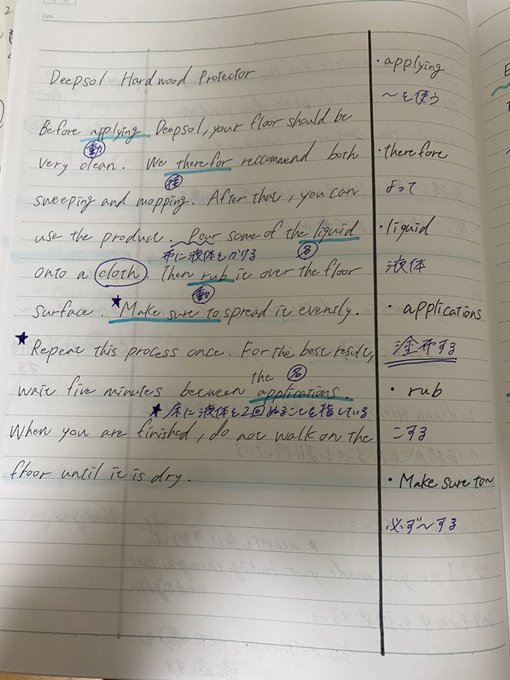 Date
Deepsol Hardwood Protector
Before applying Deepsol, your floor should be
動
very clean. We therefor reccommend both
sweeping and mopping. After that, you can
use the product. Pour some of the liquid
布に液体をかける
名
onto a cloth. Then rub it over the floor
動
surface. ★Make sure to spread it evenly.
★Repeat this process once. For the best result,
the 名
wait five minutes between applications.
★床に液体を2回ぬることを指している
When you are finished, do not walk on the
floor until it is dry.
・applying
〜を使う
・therefore
よって
・liquid
液体
・applications
塗布する
・rub
こする
・Make sure to〜
必ず〜する